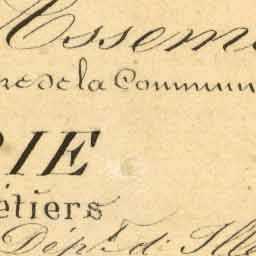 Assem
re de la Commun
RIE
étiers
Dépt. d' Ille